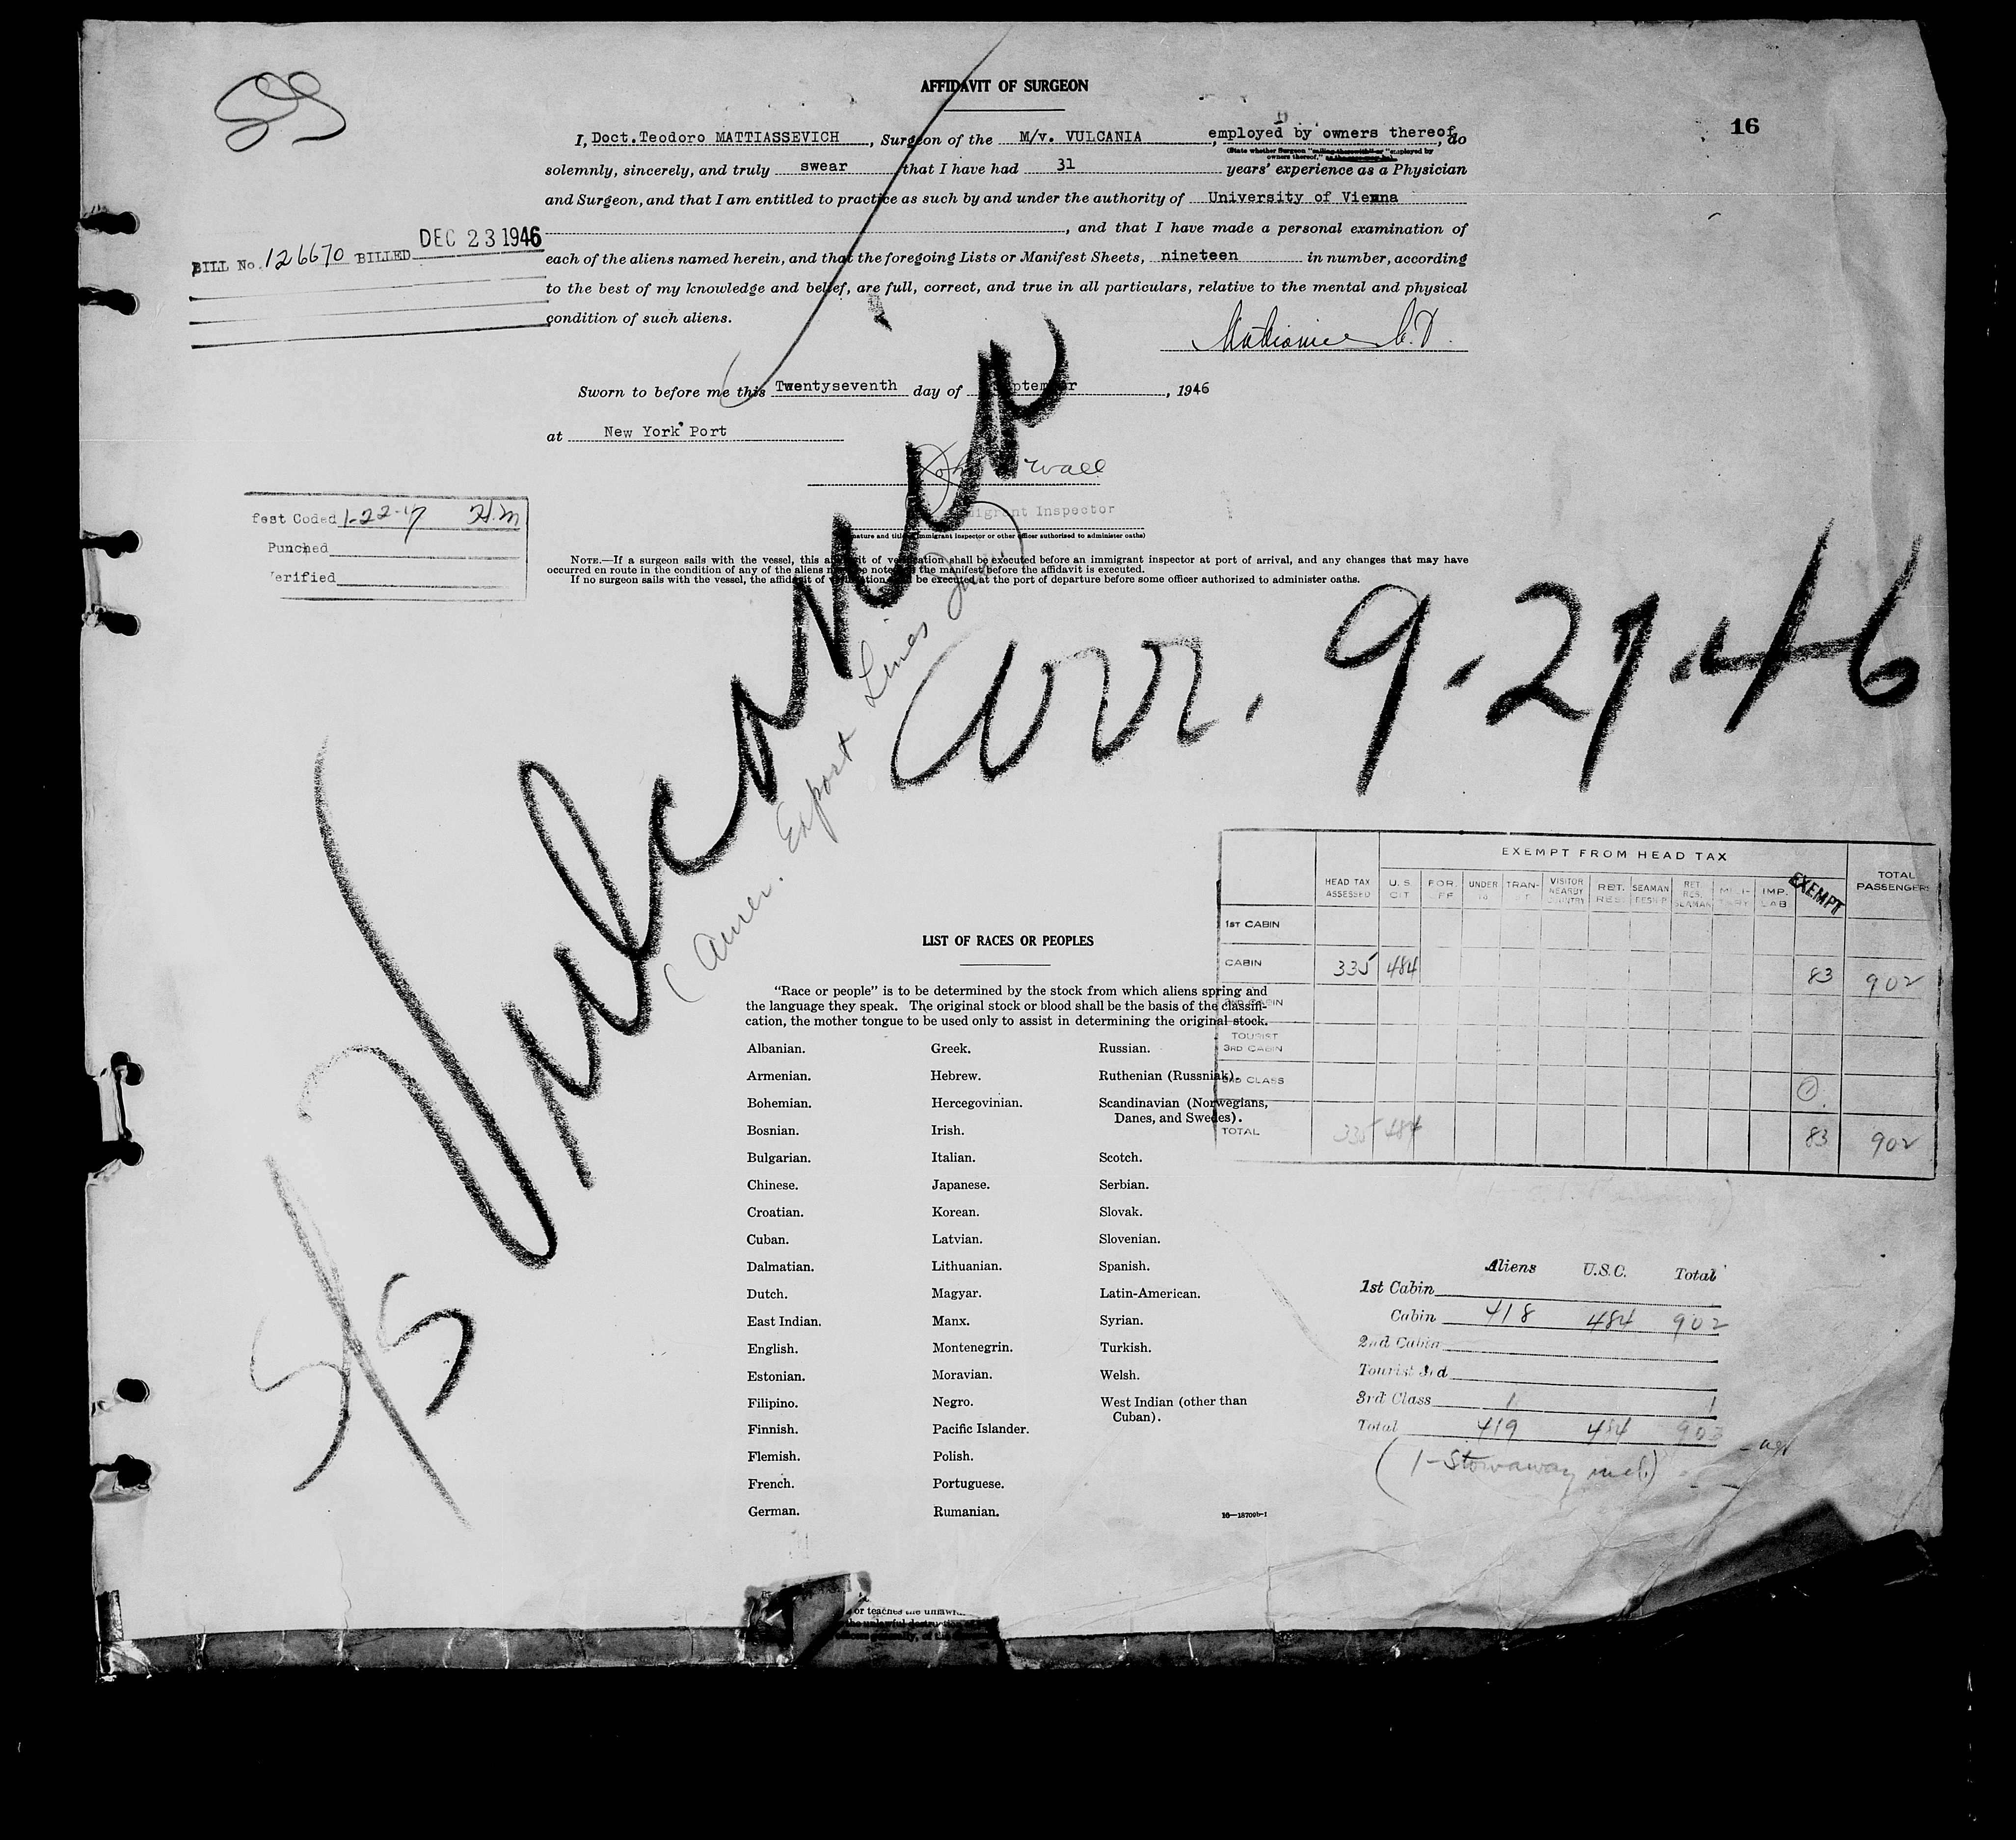 SS
AFFIDAVIT OF SURGEON
16
I, Doct.Teodoro MATTIASSEVICH, Surgeon of the M/v. VULCANIA, employed by owners thereof, do
(State whether Surgeon "sailing therewith" or "employed by
owners thereof,"
solemnly, sincerely, and truly swear that I have had 31 years' experience as a Physician
and Surgeon, and that I am entitled to practice as such by and under the authority of University of Vienna
, and that I have made a personal examination of
each of the aliens named herein, and that the foregoing Lists or Manifest Sheets, nineteen in number, according
to the best of my knowledge and belief, are full, correct, and true in all particulars, relative to the mental and physical
condition of such aliens.
BILL No. 126670 BILLED DEC 23 1946
Sworn to before me this Twentyseventh day of September, 1946
at New York Port
Wall
Immigrant Inspector
(Signature and title of immigrant inspector or other officer authorized to administer oaths)
fest Coded 1-22-47 H.M
Punched
Verified
NOTE.—If a surgeon sails with the vessel, this affidavit of verification shall be executed before an immigrant inspector at port of arrival, and any changes that may have
occurred en route in the condition of any of the aliens must be noted on the manifest before the affidavit is executed.
If no surgeon sails with the vessel, the affidavit of verification shall be executed at the port of departure before some officer authorized to administer oaths.
S/S Vulcania
(Amer. Export Lines
Arr. 9-27-46
EXEMPT FROM HEAD TAX
HEAD TAX ASSESSED U.S. CIT. FOR. OFF. UNDER 16 TRAN-SIT VISITOR NEARBY COUNTRY RET. RES. SEAMAN DES'R'D RET. RES. SEAMAN MILI-TARY IMP. LAB. EXEMPT TOTAL PASSENGERS
1ST CABIN
CABIN 335 484 83 902
2ND CABIN
TOURIST 3RD CABIN
3RD CLASS 1
TOTAL 335 484 83 902
LIST OF RACES OR PEOPLES
"Race or people" is to be determined by the stock from which aliens spring and
the language they speak. The original stock or blood shall be the basis of the classifi-
cation, the mother tongue to be used only to assist in determining the original stock.
Albanian. Greek. Russian.
Armenian. Hebrew. Ruthenian (Russniak).
Bohemian. Hercegovinian. Scandinavian (Norwegians,
Danes, and Swedes).
Bosnian. Irish.
Bulgarian. Italian. Scotch.
Chinese. Japanese. Serbian.
Croatian. Korean. Slovak.
Cuban. Latvian. Slovenian.
Dalmatian. Lithuanian. Spanish.
Dutch. Magyar. Latin-American.
East Indian. Manx. Syrian.
English. Montenegrin. Turkish.
Estonian. Moravian. Welsh.
Filipino. Negro. West Indian (other than
Cuban).
Finnish. Pacific Islander.
Flemish. Polish.
French. Portuguese.
German. Rumanian.
16—18700b-1
Aliens U.S.C. Total
1st Cabin
Cabin 418 484 902
2nd Cabin
Tourist 3rd
3rd Class 1 1
Total 419 484 903
(1-Stowaway incl.)
or teaches the unlawf
the unlawful destruction